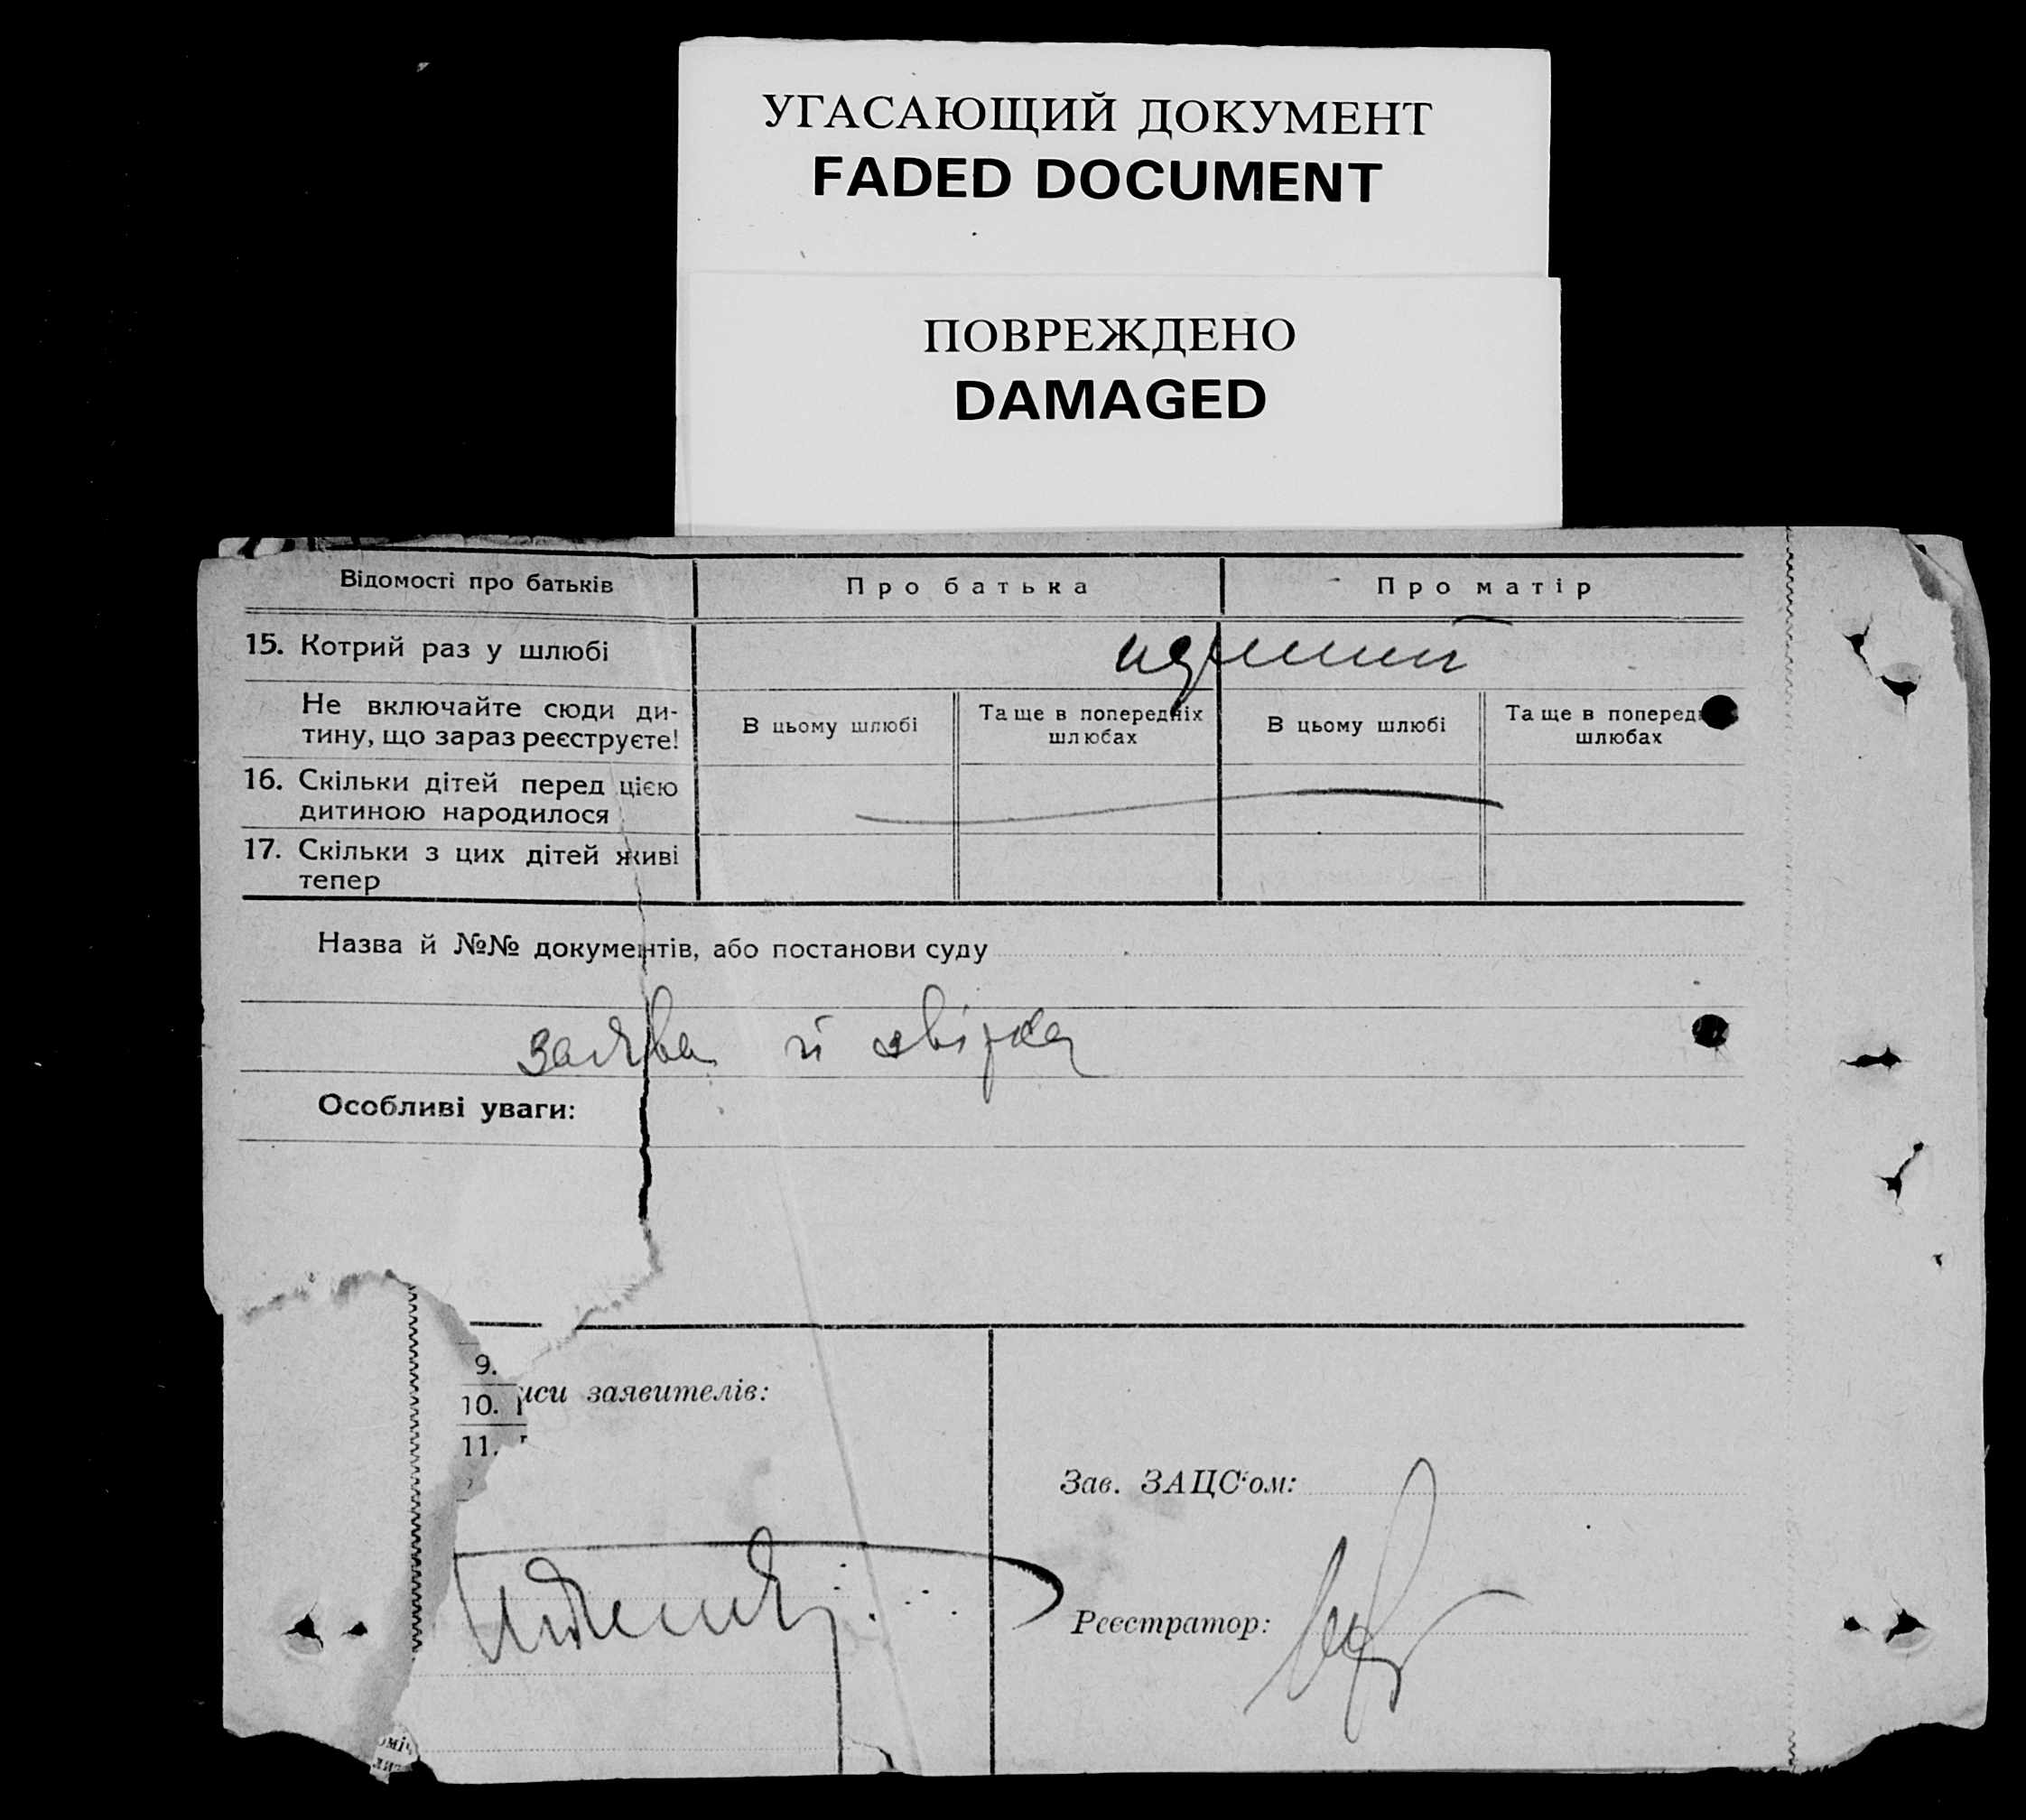 УГАСАЮЩИЙ ДОКУМЕНТ
FADED DOCUMENT
ПОВРЕЖДЕНО
DAMAGED
Відомості про батьків
Про батька
Про матір
15. Котрий раз у шлюбі
перший
Не включайте сюди ди-
тину, що зараз реєструєте!
В цьому шлюбі
Та ще в попередніх
шлюбах
В цьому шлюбі
Та ще в поперед
шлюбах
16. Скільки дітей перед цією
дитиною народилося
17. Скільки з цих дітей живі
тепер
Назва й №№ документів, або постанови суду
заява й звірка
Особливі уваги:
9.
10.
11.
иси заявителів:
Зав. ЗАЦС'ом:
Реєстратор: